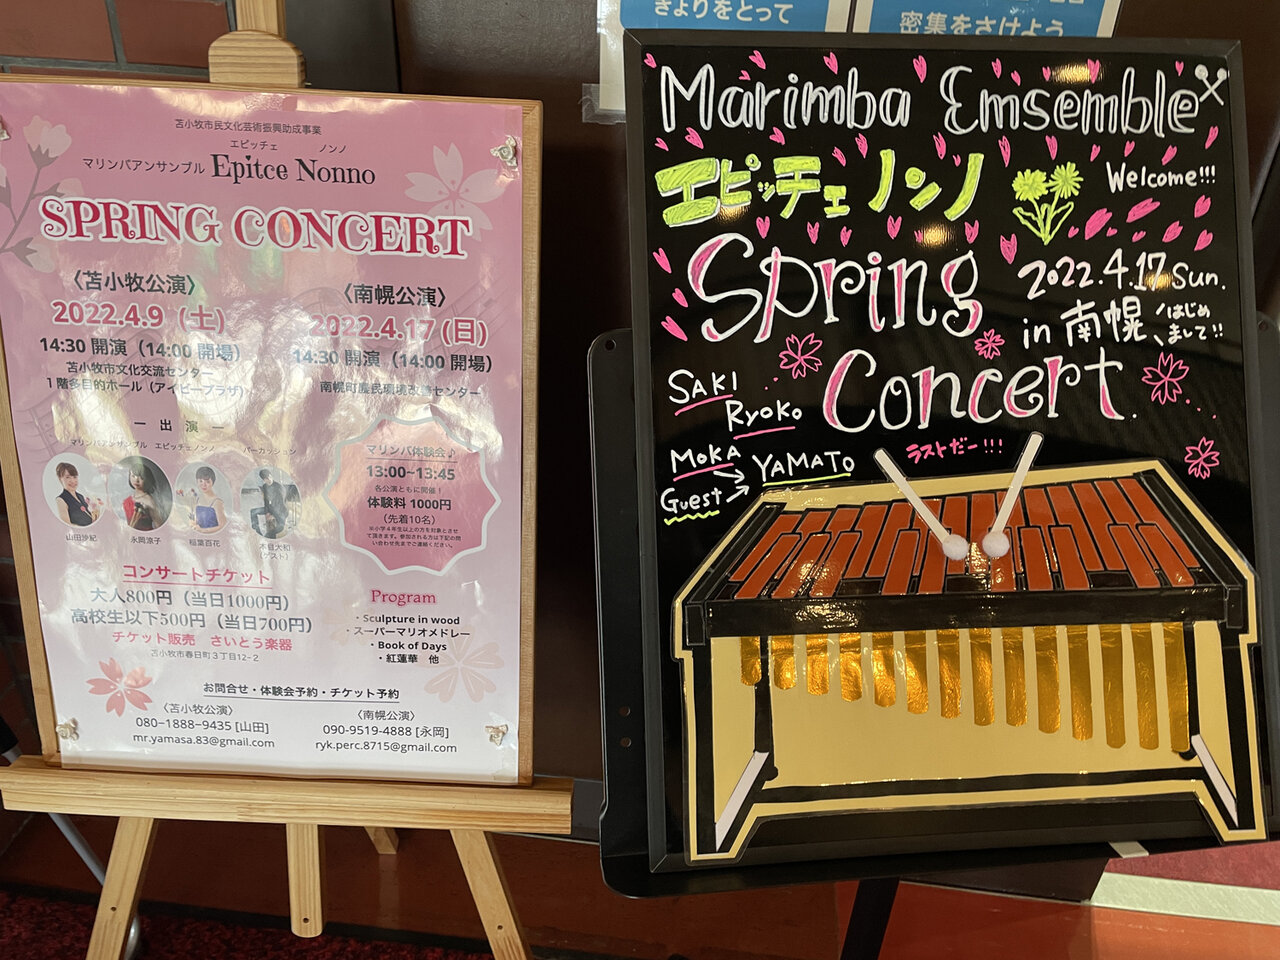 苫小牧市民文化芸術振興助成事業
エピッチェ ノンノ
マリンバアンサンブル Epitce Nonno
SPRING CONCERT
〈苫小牧公演〉
2022.4.9（土）
14:30 開演（14:00 開場）
苫小牧市文化交流センター
１階多目的ホール（アイビープラザ）
〈南幌公演〉
2022.4.17 (日)
14:30 開演（14:00 開場）
南幌町農民環境改善センター
ー 出 演 ー
マリンバアンサンブル エピッチェノンノ パーカッション
山田沙紀 永岡涼子 稲葉百花 木目大和
（ゲスト）
マリンバ体験会♪
13:00~13:45
各公演ともに開催！
体験料 1000円
（先着10名）
※小学４年生以上の方を対象とさせ
て頂きます。参加される方は下記の問
い合わせ先までご連絡ください。
コンサートチケット
大人800円（当日1000円）
高校生以下500円（当日700円）
チケット販売 さいとう楽器
苫小牧市春日町３丁目12−2
Program
・Sculpture in wood
・スーパーマリオメドレー
・Book of Days
・紅蓮華 他
お問合せ・体験会予約・チケット予約
〈苫小牧公演〉
080−1888−9435 [山田]
mr.yamasa.83@gmail.com
〈南幌公演〉
090-9519-4888 [永岡]
ryk.perc.8715@gmail.com
きょりをとって
密集をさけよう
Marimba Emsemble
エピッチェ ノンノ
Welcome!!!
Spring
Concert.
2022.4.17 Sun.
in 南幌
はじめ
まして!!
SAKI
RYOKO
MOKA
YAMATO
Guest
ラストだー!!!